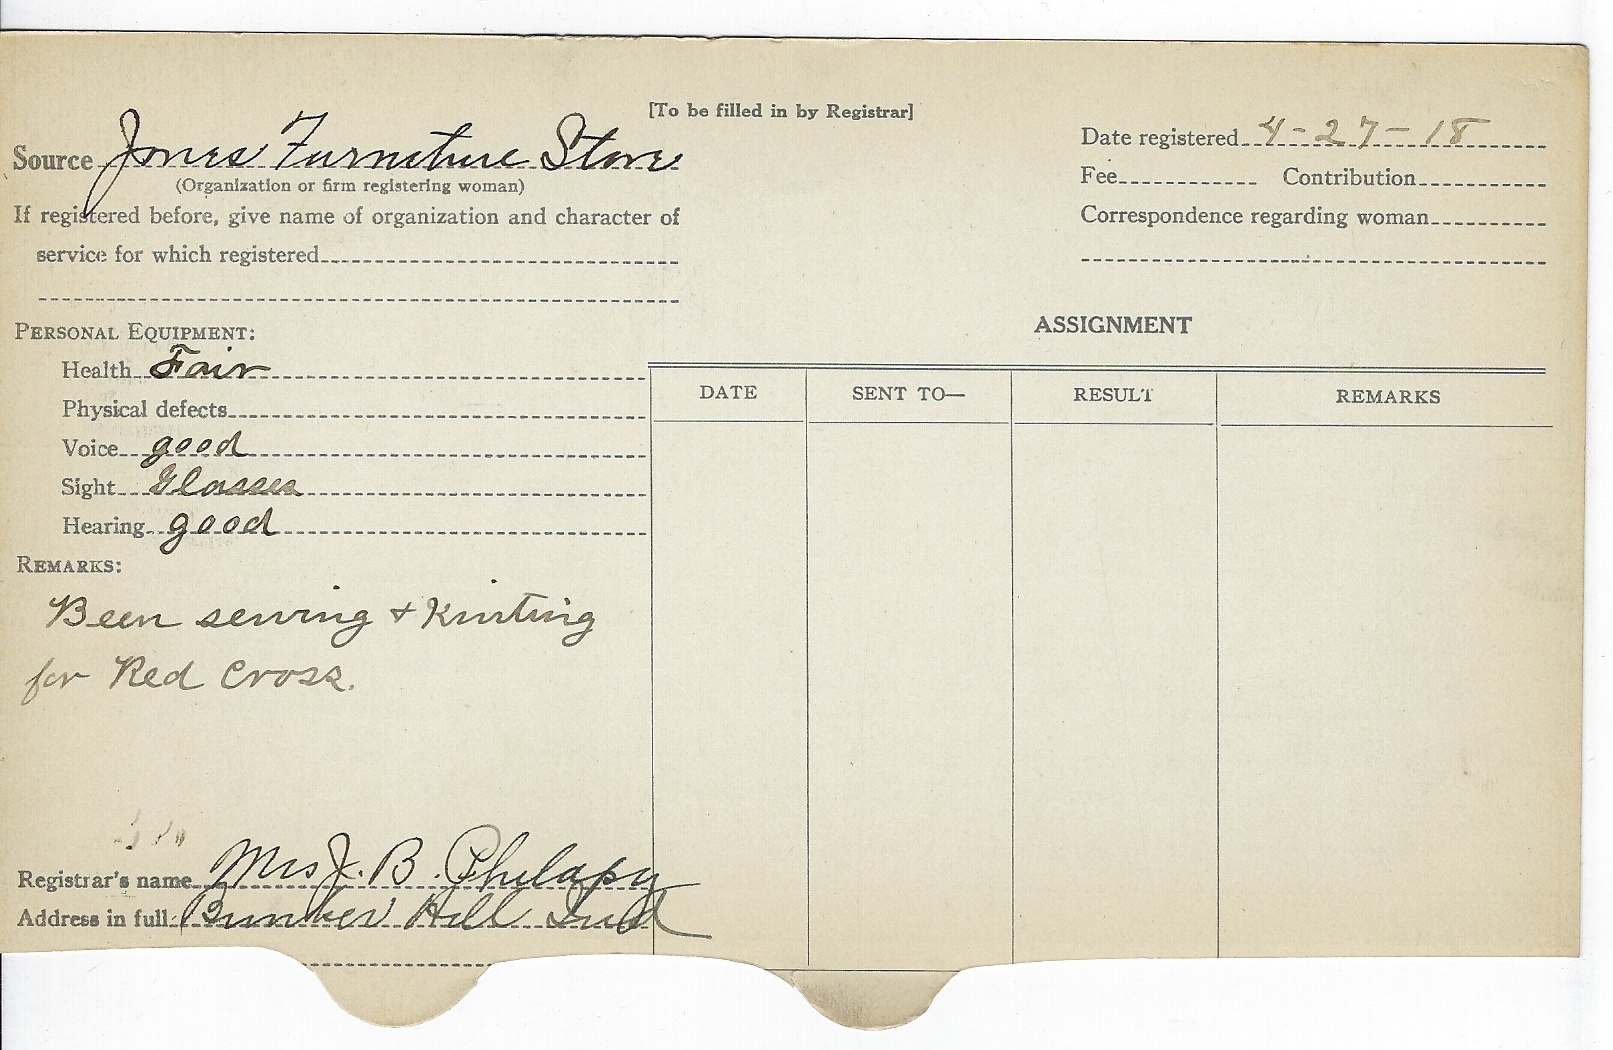 [To be filled in by Registrar]
Source Jones Furniture Store
(Organization or firm registering woman)
If registered before, give name of organization and character of
service for which registered
Date registered 4-27-18
Fee Contribution
Correspondence regarding woman
PERSONAL EQUIPMENT:
Health Fair
Physical defects
Voice good
Sight Glasses
Hearing good
REMARKS:
Been sewing + Knitting
for Red Cross.
Registrar's name Mrs J. B. Philapy
Address in full Bunker Hill Ind
ASSIGNMENT
DATE SENT TO— RESULT REMARKS